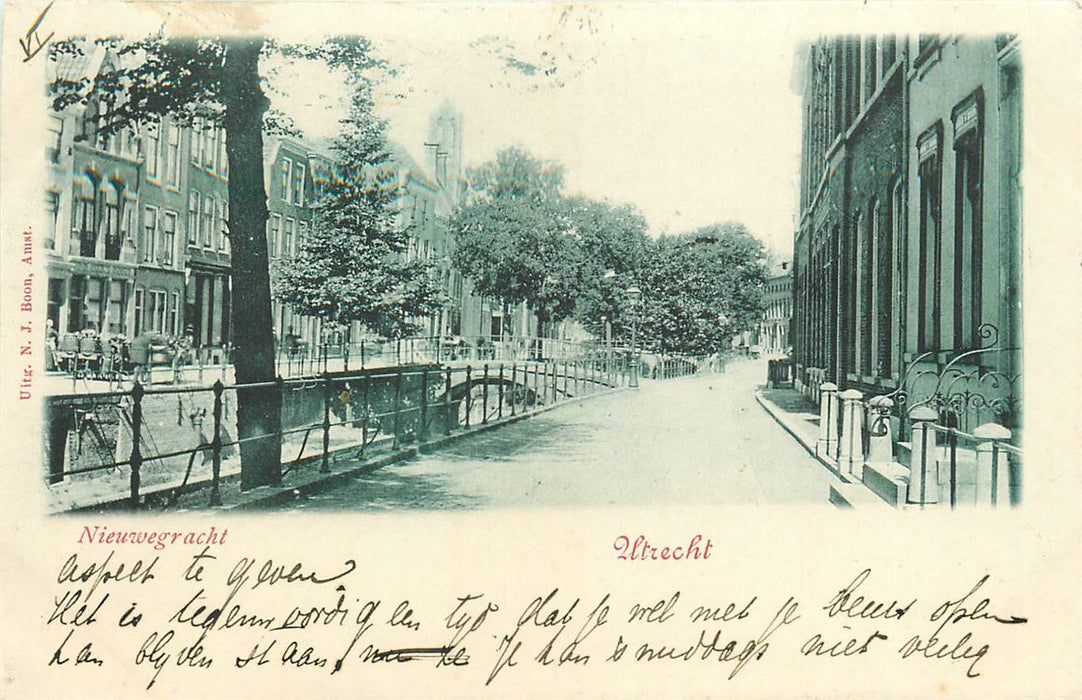 VI
Uitg. N. J. Boon, Amst.
Nieuwegracht
Utrecht
aspect te geven
Het is tegenwoordig een tyd dat je wel met je beurs open
kan blyven staan, Je kan 's middags niet veilig